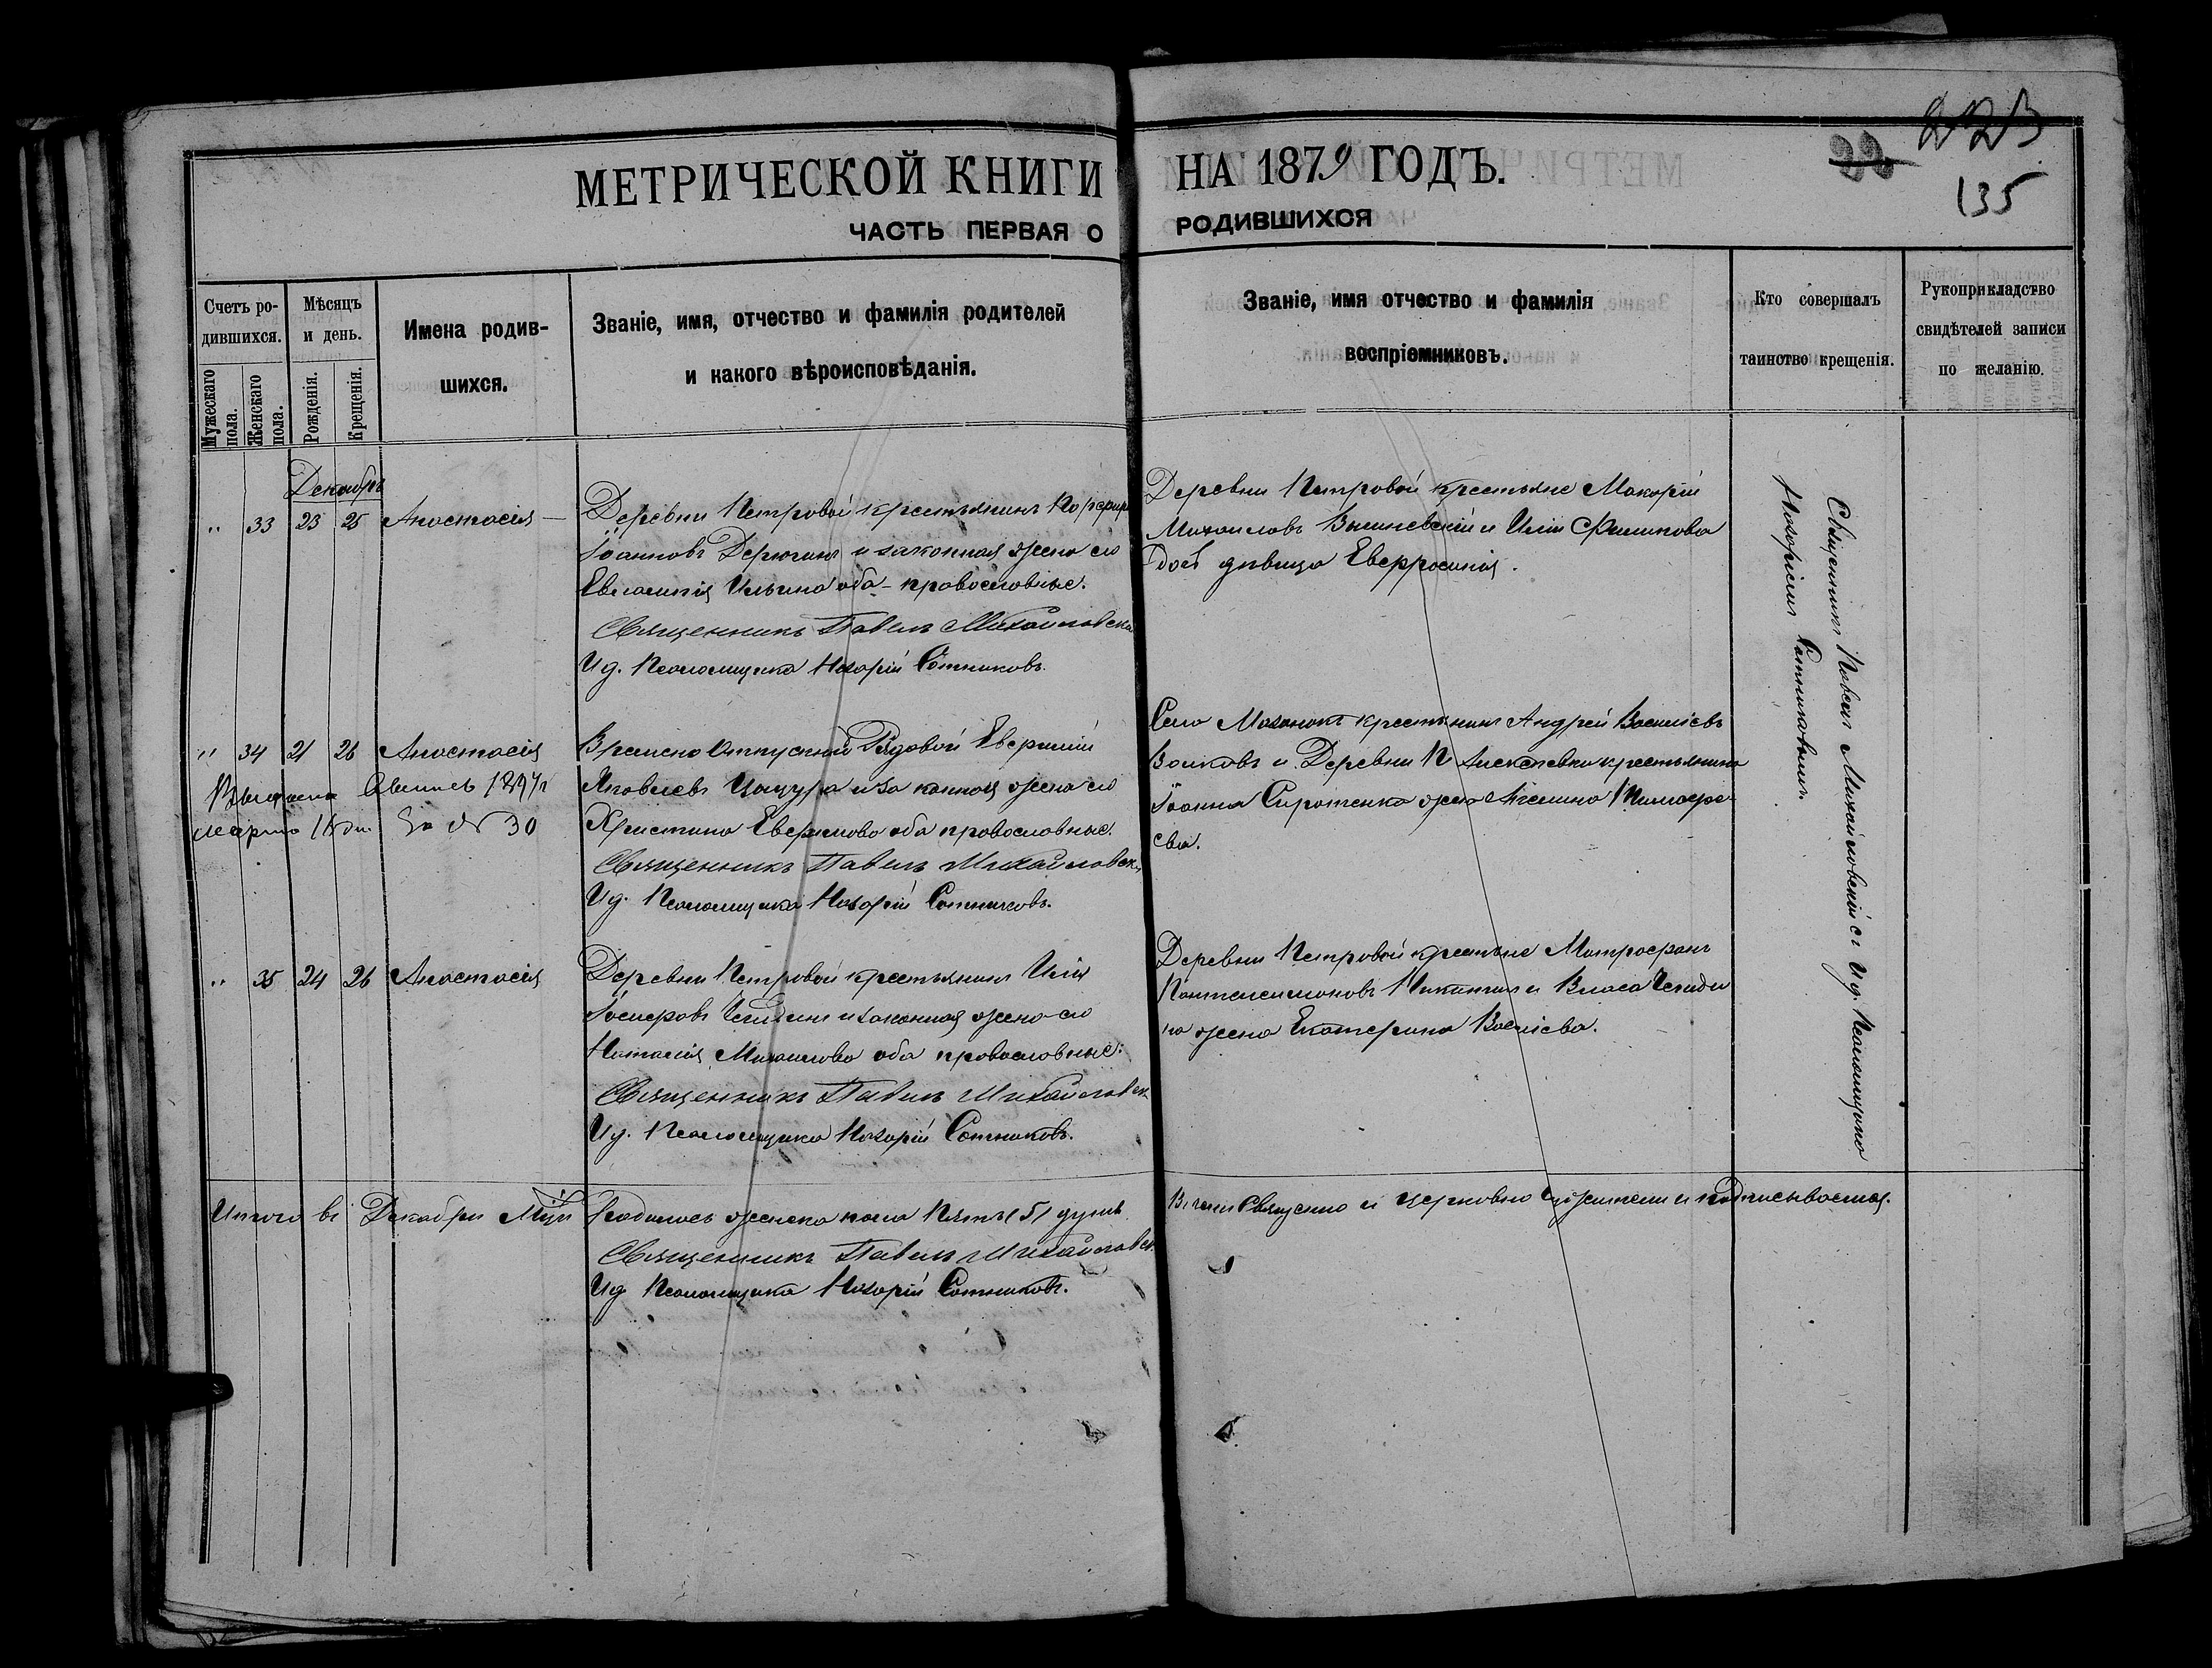 223
22
135
МЕТРИЧЕСКОЙ КНИГИ НА 1879 ГОДЪ.
ЧАСТЬ ПЕРВАЯ О РОДИВШИХСЯ
Счетъ ро-
дившихся.
Мужескаго
пола.
Женскаго
пола.
Мѣсяцъ
и день.
Рожденія.
Крещенія.
Имена родив-
шихся.
Званіе, имя, отчество и фамилія родителей
и какого вѣроисповѣданія.
Званіе, имя отчество и фамилія
воспріемниковъ.
Кто совершалъ
таинство крещенія.
Рукоприкладство
свидѣтелей записи
по желанію.
Декабрь
" 33 23 25 Анастасія
Деревни Петровой крестьянинъ Порфирій
Іоанновъ Дерюгинъ и законная жена его
Ильина оба православные.
Священникъ Павелъ Михайловскій
И д. Псаломщика Назарій Сотниковъ.
Деревни Петровой крестьяне Макарій
Михаиловъ Вышневскій и Иліи Филипова
дочь дѣвица Евфросинія.
Священникъ Павелъ Михайловскій съ И д. Псаломщика
Назаріемъ Сотниковымъ.
" 34 21 26 Анастасія
марта 16 дн. За № 30
Временно Отпускной Рядовой Евфимій
Яковлевъ Цацура и законная жена его
Христина Евфимова оба православные.
Священникъ Павелъ Михайловскій
И д. Псаломщика Назарій Сотниковъ.
Села крестьянинъ Андрей Василіевъ
Волковъ и Деревни Н Алексѣевки крестьянина
Іоанна Сиротенка жена Тимофе-
ева.
" 35 24 26 Анастасія
Деревни Петровой крестьянинъ Илія
и законная жена его
Наталія Михаилова оба православные.
Священникъ Павелъ Михайловскій
И д. Псаломщика Назарій Сотниковъ.
Деревни Петровой крестьяне Митрофанъ
Пантелеимоновъ Никитинъ и Власа
на жена Екатерина Василіева.
Итого въ Декабрѣ М-цѣ родилось женска пола Пять (5) душъ.
Священникъ Павелъ Михайловскій
И д Псаломщика Назарій Сотниковъ.
В чемъ Священно и церковно служители и подписываемся.